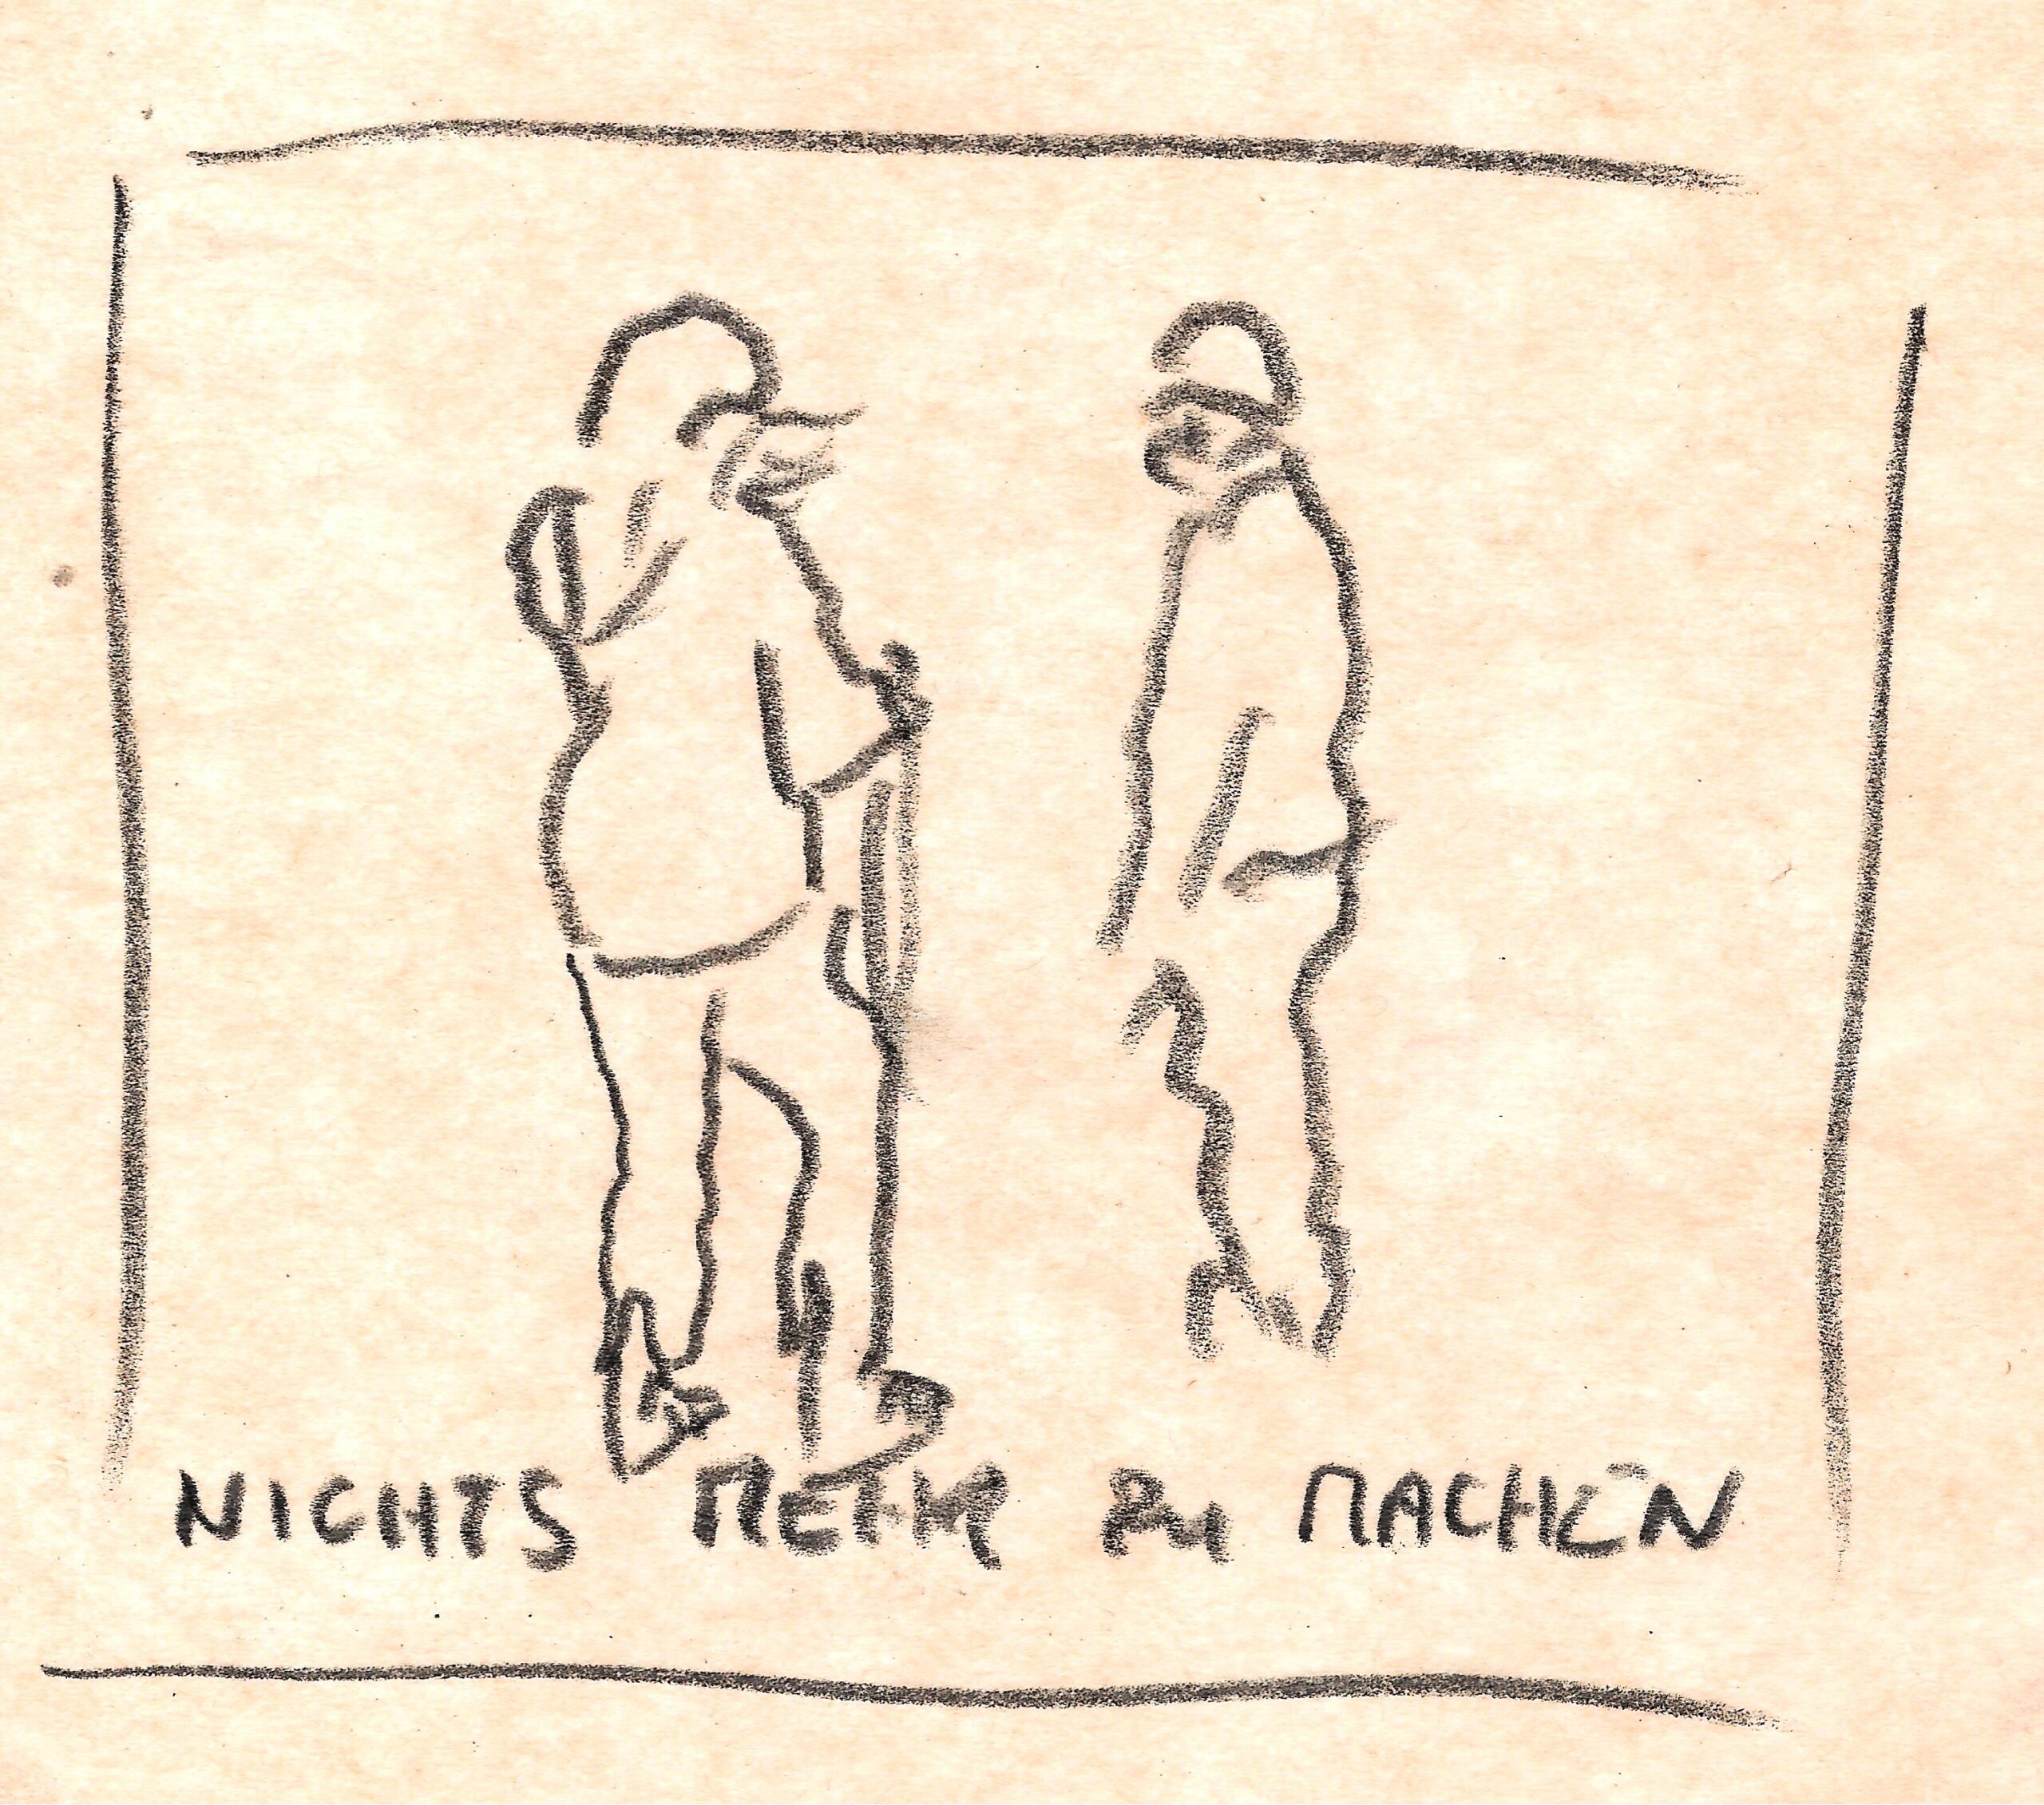 NICHTS MEHR ZU MACHEN